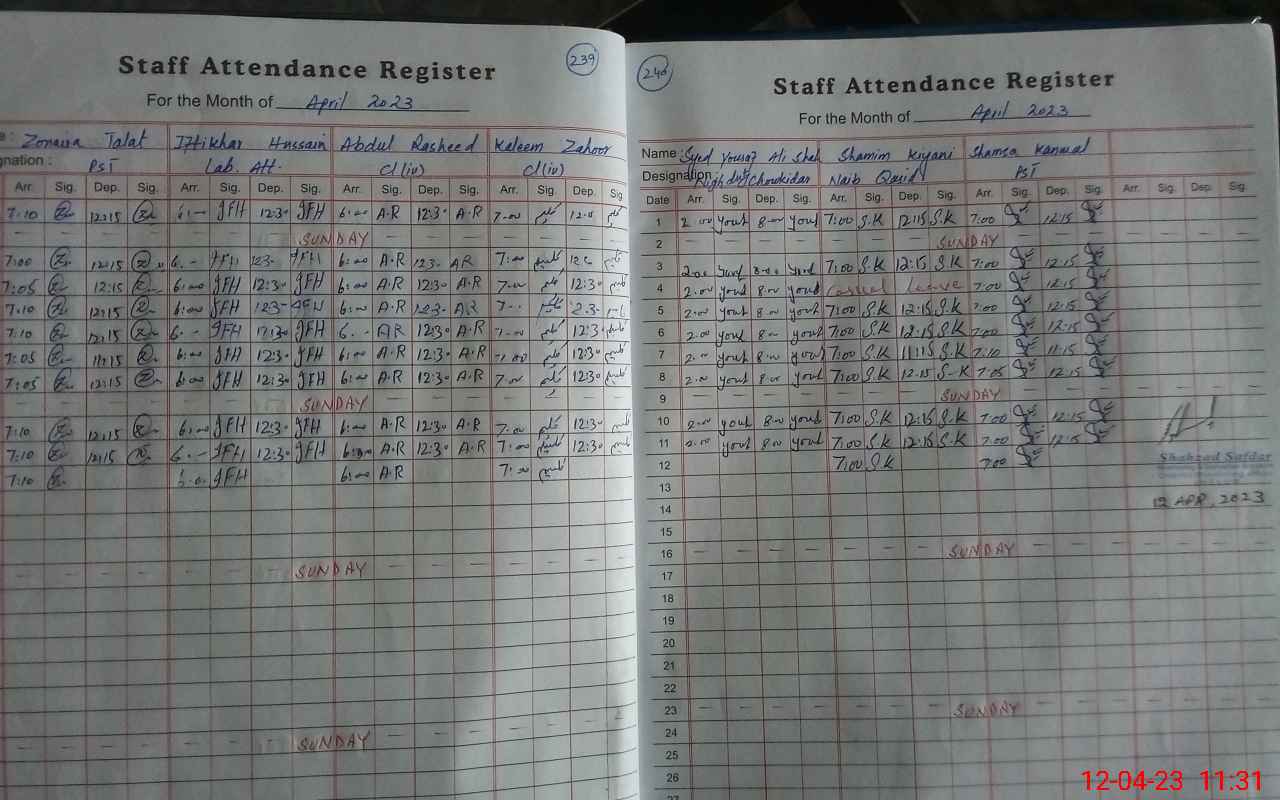 239
Staff Attendance Register
For the Month of April 2023
Zonaira Talat Iftikhar Hussain Abdul Rasheed Kaleem Zahoor
gnation : PST Lab. Att. Cl(iv) Cl(iv)
Arr. Sig. Dep. Sig. Arr. Sig. Dep. Sig. Arr. Sig. Dep. Sig. Arr. Sig. Dep. Sig
7:10 12:15 6:00 IFH 12:30 IFH 6:00 A.R 12:30 A.R 7:00 کلیم کلیم
SUNDAY
7:00 12:15 6:00 IFH 12:30 IFH 6:00 A.R 12:30 AR 7:00 کلیم کلیم
7:05 12:15 6:00 IFH 12:30 IFH 6:00 A.R 12:30 A.R 7:00 کلیم 12:30 کلیم
7:10 12:15 6:00 IFH 12:30 IFH 6:00 A.R 12:30 AR کلیم
7:10 12:15 IFH 12:30 IFH AR 12:30 A.R 7:00 کلیم 12:30 کلیم
7:05 12:15 6:00 IFH 12:30 IFH 6:00 A.R 12:30 A.R 7:00 کلیم 12:30 کلیم
7:05 12:15 6:00 IFH 12:30 IFH 6:00 A.R 12:30 A.R 7:00 کلیم 12:30 کلیم
SUNDAY
7:10 12:15 6:00 IFH 12:30 IFH 6:00 A.R 12:30 A.R 7:00 کلیم 12:30 کلیم
7:10 12:15 IFH 12:30 IFH 6:00 A.R 12:30 A.R 7:00 کلیم 12:30 کلیم
7:10 IFH 6:00 A.R 7:00 کلیم
SUNDAY
SUNDAY
240
Staff Attendance Register
For the Month of April 2023
Name : Syed Yousaf Ali Shah Shamim Kiyani Shamsa Kanwal
Designation : Night duty Chowkidar Naib Qasid PST
Date Arr. Sig. Dep. Sig. Arr. Sig. Dep. Sig. Arr. Sig. Dep. Sig. Arr. Sig. Dep. Sig.
1 2:00 youf 8:00 youf 7:00 S.K 12:15 S.K 7:00 12:15
2 SUNDAY
3 2:00 youf 8:00 youf 7:00 S.K 12:15 S.K 7:00 12:15
4 2:00 youf 8:00 youf Casual Leave 7:00 12:15
5 2:00 youf 8:00 youf 7:00 S.K 12:15 S.K 7:00 12:15
6 2:00 youf 8:00 youf 7:00 S.K 12:15 S.K 7:00 12:15
7 2:00 youf 8:00 youf 7:00 S.K 11:15 S.K 7:10 11:15
8 2:00 youf 8:00 youf 7:00 S.K 12:15 S.K 7:05 12:15
9 SUNDAY
10 2:00 youf 8:00 youf 7:00 S.K 12:15 S.K 7:00 12:15
11 2:00 youf 8:00 youf 7:00 S.K 12:15 S.K 7:00 12:15
12 7:00 S.K 7:00
Shahzad Safdar
13
12 APR, 2023
14
15
16 SUNDAY
17
18
19
20
21
22
23 SUNDAY
24
25
26
27
12-04-23 11:31